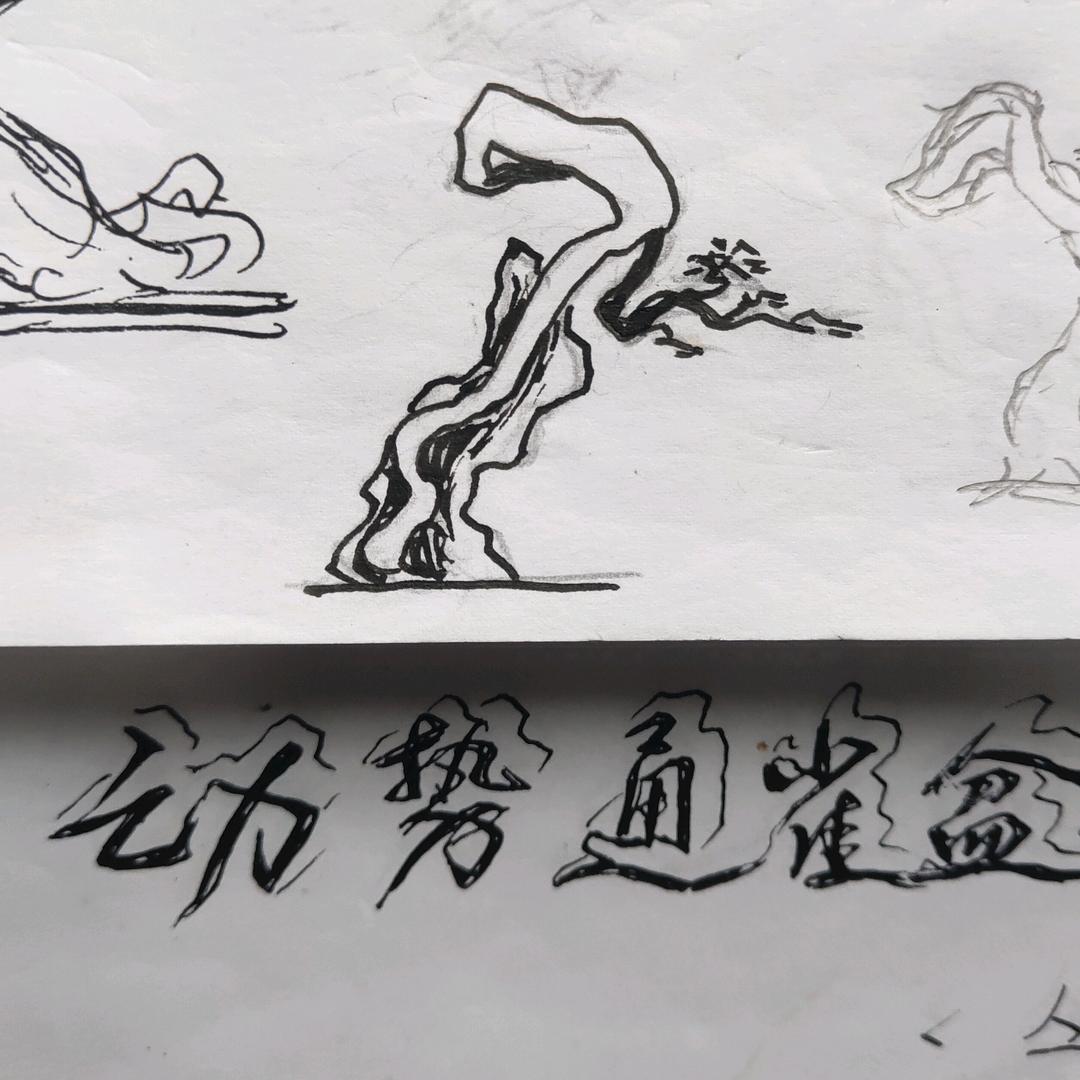 动势通雀盆